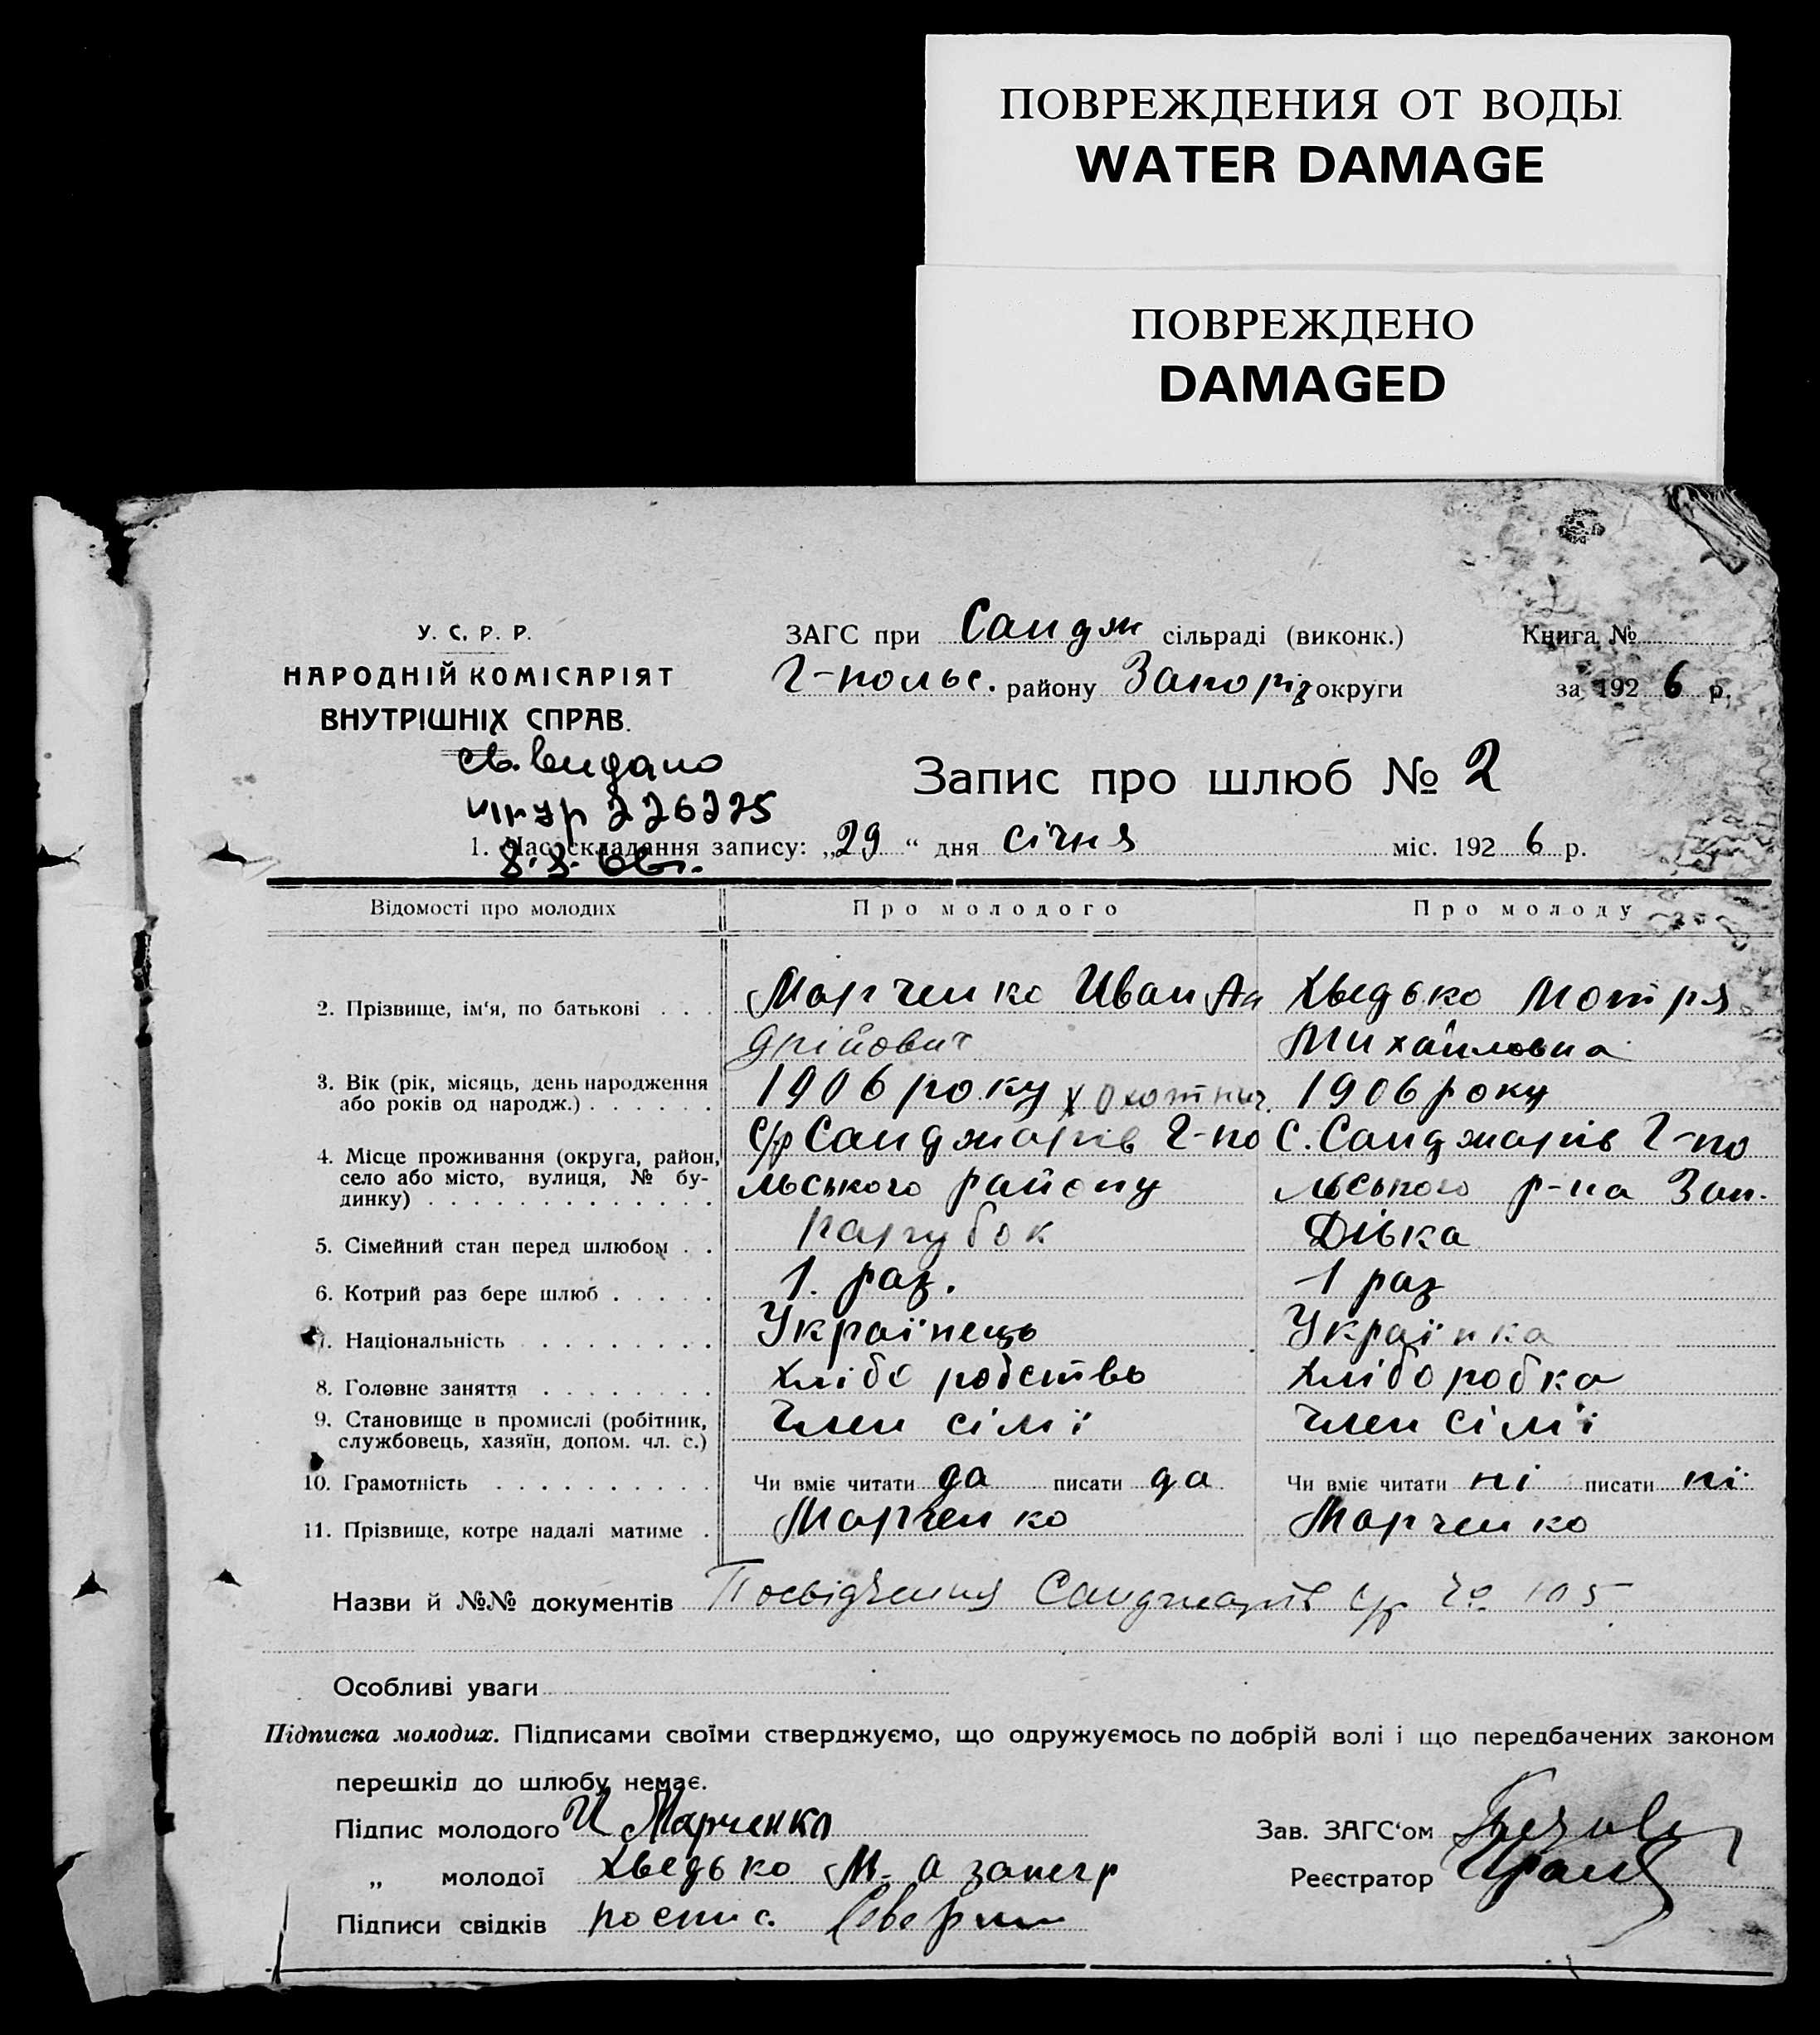 ПОВРЕЖДЕНИЯ ОТ ВОДЫ
WATER DAMAGE
ПОВРЕЖДЕНО
DAMAGED
У. С. Р. Р.
НАРОДНІЙ КОМІСАРІЯТ
ВНУТРІШНІХ СПРАВ.
св. видано
226225
8.8.66г.
ЗАГС при Сандж сільраді (виконк.)
Г-польс. району Запоріз округи
Книга №
за 1926 р.
Запис про шлюб № 2
1. Час складання запису: „29“ дня січня міс. 1926 р.
Відомості про молодих Про молодого Про молоду
2. Прізвище, ім'я, по батькові . . . Марченко Иван Ан Хведько Мотря
дрійович Михайловна
3. Вік (рік, місяць, день народження
або років од народж.) . . . . . . 1906 року х Охотнич. 1906 року
4. Місце проживання (округа, район,
село або місто, вулиця, № бу-
динку) . . . . . . . . . . . . .
с/р Санджарів Г-по С. Санджарів Г-по
льського району льського р-на Зап.
5. Сімейний стан перед шлюбом . . парубок Дівка
6. Котрий раз бере шлюб . . . . . 1. раз. 1 раз
7. Національність . . . . . . . . . Українець Українка
8. Головне заняття . . . . . . . . Хлібо робство Хліборобка
9. Становище в промислі (робітник,
службовець, хазяїн, допом. чл. с.) Член сімї член сімї
10. Грамотність . . . . . . . . . . Чи вміє читати да писати да Чи вміє читати ні писати ні
11. Прізвище, котре надалі матиме . Марченко Марченко
Назви й №№ документів Посвідчення Санджарів с/р 105
Особливі уваги
Підписка молодих. Підписами своїми стверджуємо, що одружуємось по добрій волі і що передбачених законом
перешкід до шлюбу немає.
Підпис молодого И Марченко
„ молодої Хведько М. а за негр
Підписи свідків роспис.
Зав. ЗАГС'ом
Реєстратор